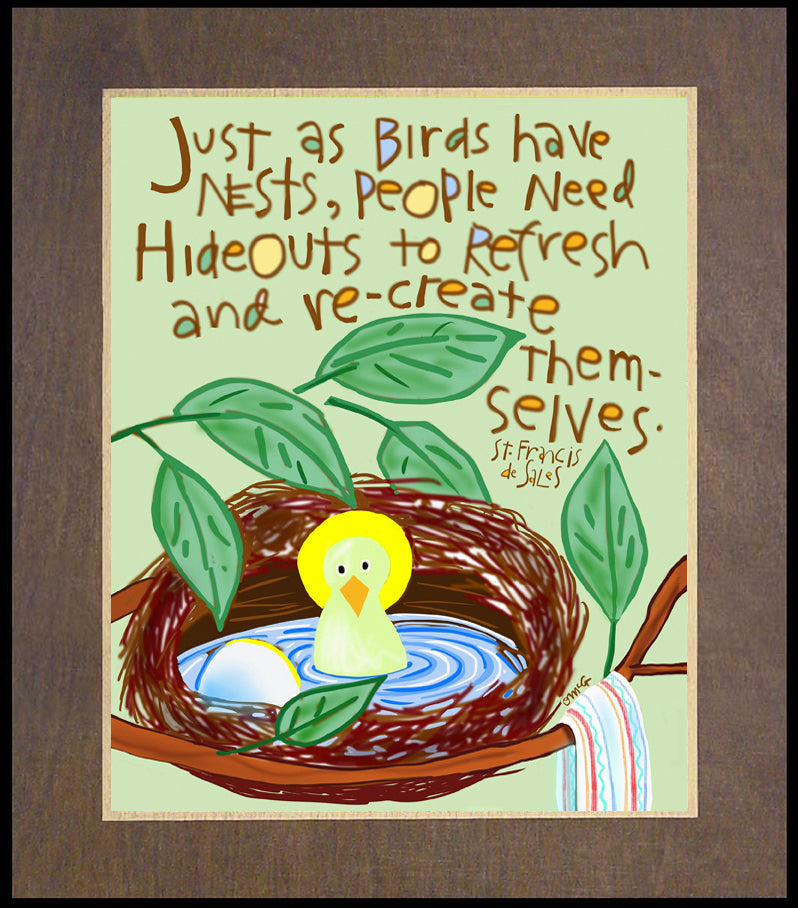 Just as Birds have
Nests, People Need
Hideouts to Refresh
and re-create
them-
selves.
St. Francis
de Sales
©McG